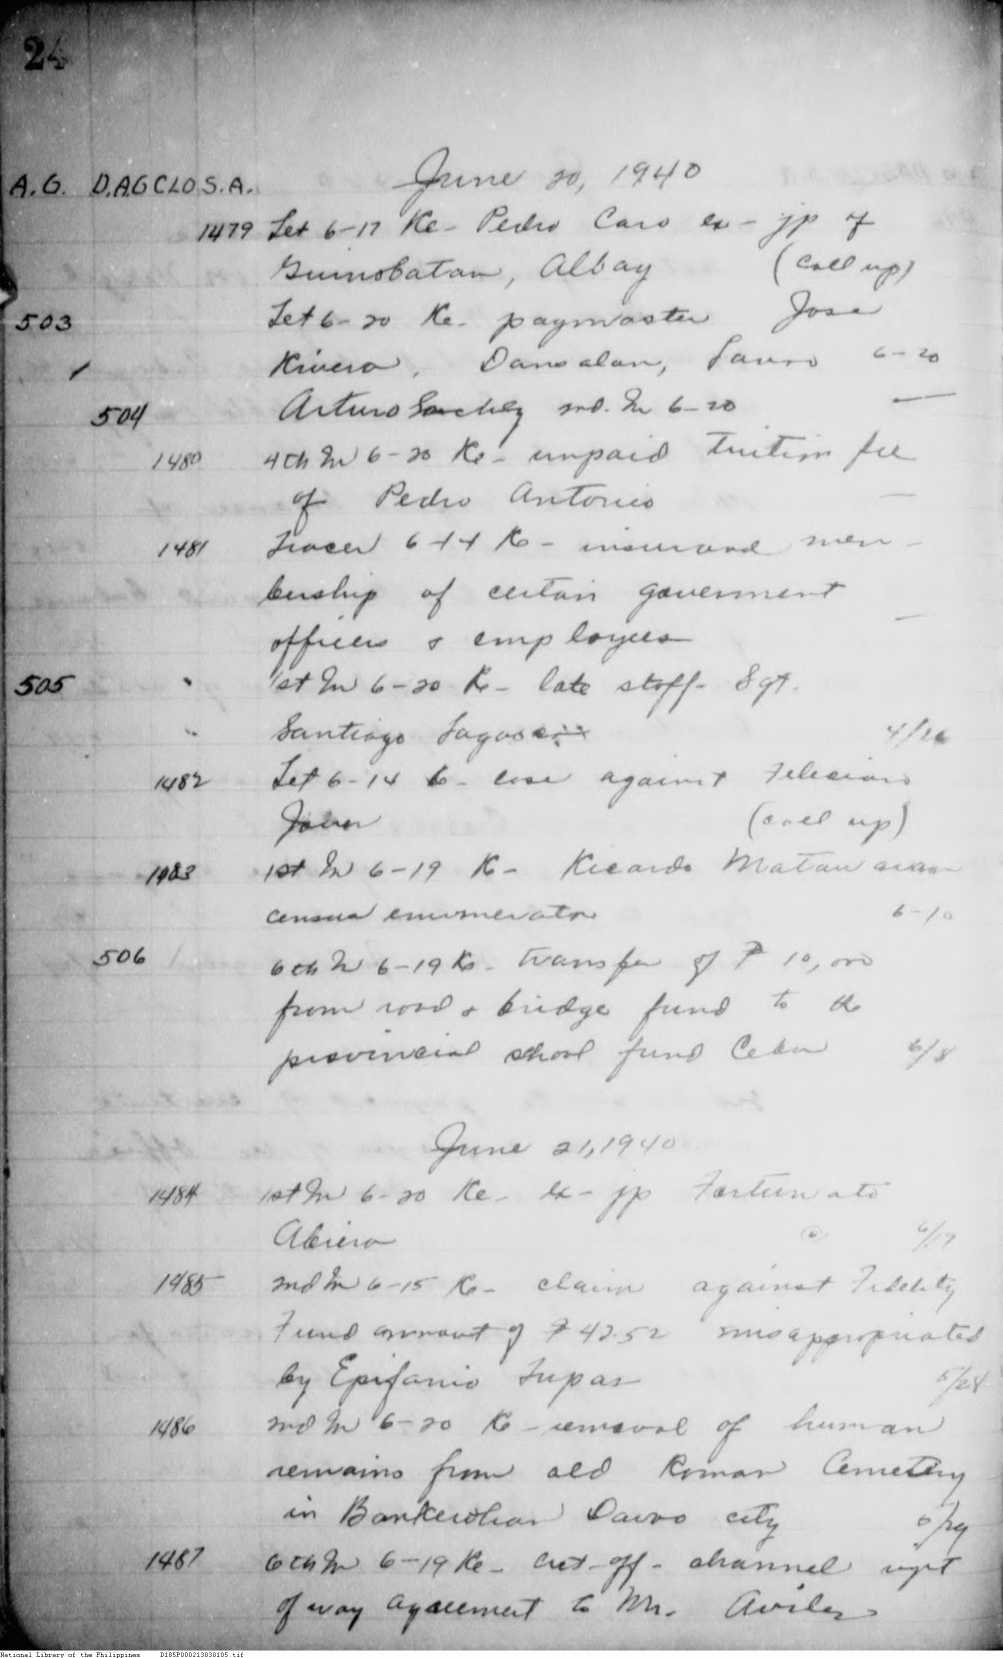 24
A.G. D.A.G CLO S.A. June 20, 1940
1479 Let 6-17 Re- Pedro Caro ex- jp of
Guinobatan, Albay (call up)
503 Let 6-20 Re- paymaster Jose
Rivera, Dansalan, Lanao 6-20
504 Arturo Sanchez 2nd. In 6-20 —
1480 4th In 6-20 Re- unpaid tuition fee
of Pedro Antonio —
1481 Tracer 6-14 Re- insurance mem-
bership of certain government
officers & employees —
505 1st In 6-20 Re- late staff Sgt.
Santiago
1482 Let 6-14 Re- case against Feliciano
(call up)
1483 1st In 6-19 Re- Ricardo
census enumerator 6-10
506 6th In 6-19 Re- transfer of ₱ 10,000
from road & bridge fund to the
provincial school fund Cebu 6/8
June 21, 1940
1484 1st In 6-20 Re- ex- jp Fortunato
Abiera 6/19
1485 2nd In 6-15 Re- claim against Fidelity
Fund amount of ₱ 42.52 misappropriated
by Epifanio Tupas 5/28
1486 2nd In 6-20 Re- removal of human
remains from old Roman Cemetery
in Bankerohan Davao city
1487 6th In 6-19 Re- cut-off- channel right
of way agreement to Mr. Aviles
National Library of the Philippines D185P000213838105.tif